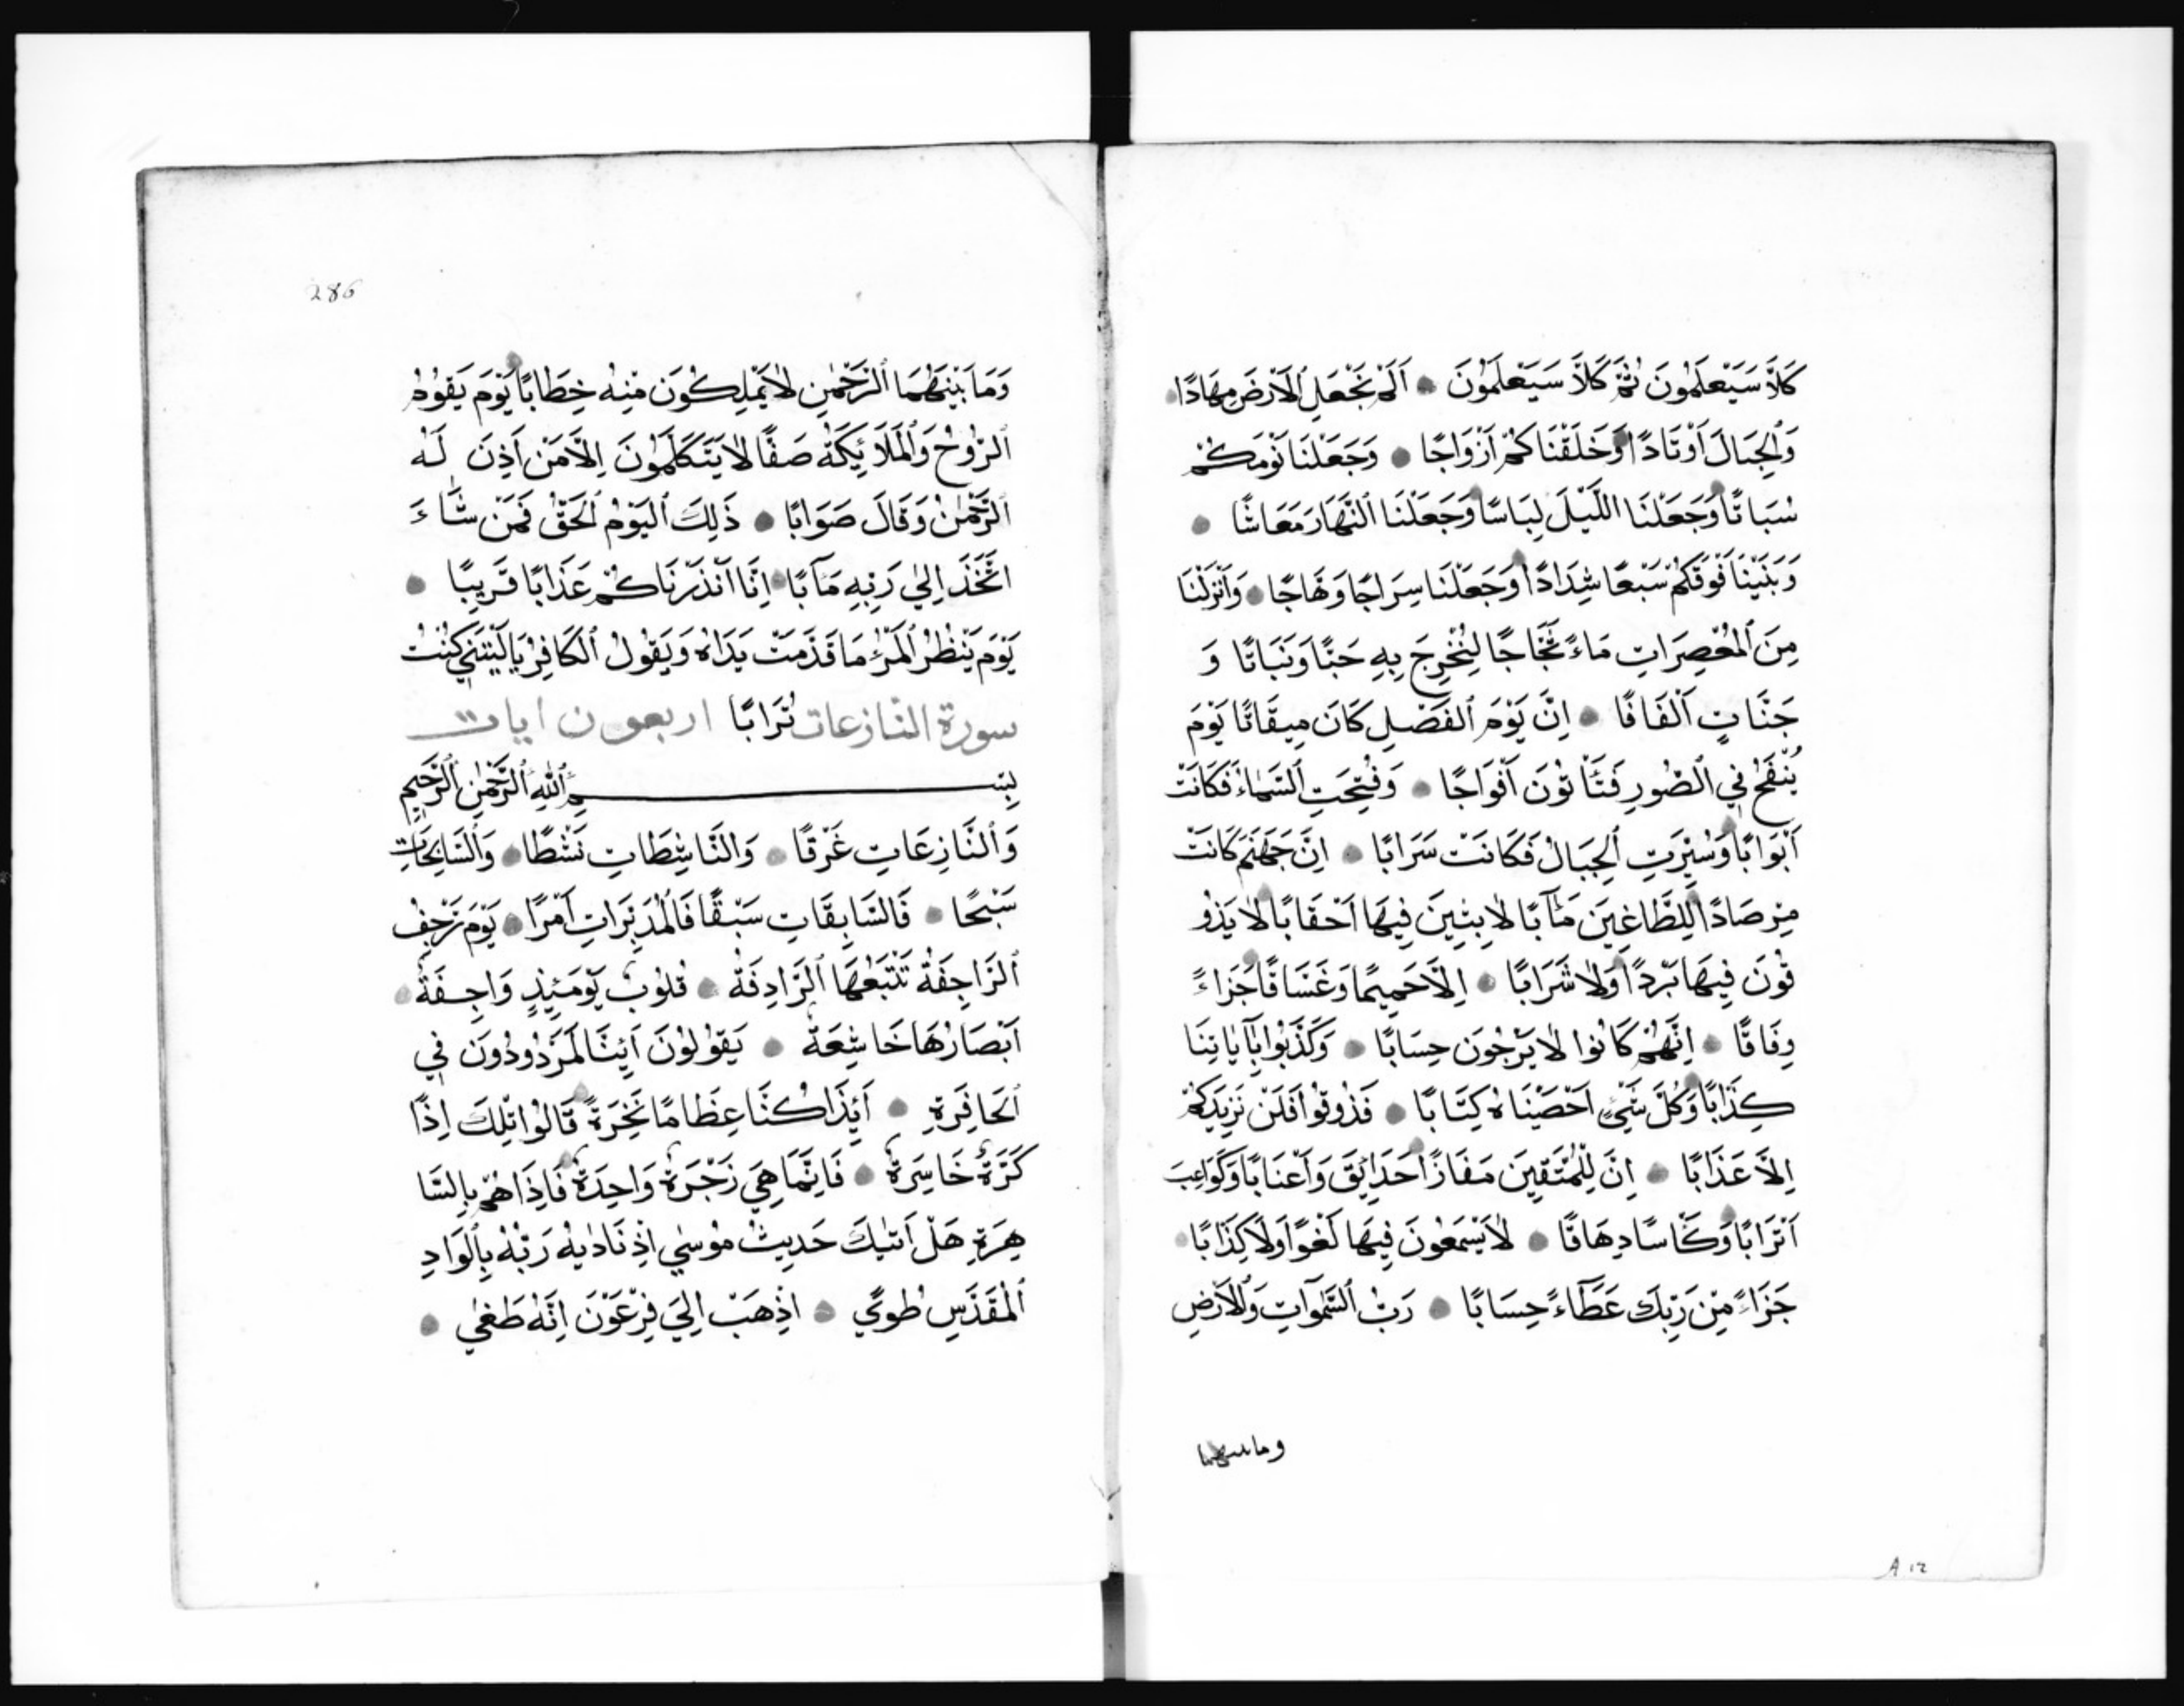 كَلاَّ سَيَعْلَمُونَ ثُمَّ كَلاَّ سَيَعْلَمُونَ اَلَمْ نَجْعَلِ الْاَرْضَ مِهَادًا
وَالْجِبَالَ اَوْتَادًا وَخَلَقْنَاكُمْ اَزْوَاجًا وَجَعَلْنَا نَوْمَكُمْ
سُبَاتًا وَجَعَلْنَا اللَّيْلَ لِبَاسًا وَجَعَلْنَا النَّهَارَ مَعَاشًا
وَبَنَيْنَا فَوْقَكُمْ سَبْعًا شِدَادًا وَجَعَلْنَا سِرَاجًا وَهَّاجًا وَاَنْزَلْنَا
مِنَ الْمُعْصِرَاتِ مَاءً ثَجَّاجًا لِنُخْرِجَ بِهِ حَبًّا وَنَبَاتًا وَ
جَنَّاتٍ اَلْفَافًا اِنَّ يَوْمَ الْفَصْلِ كَانَ مِيقَاتًا يَوْمَ
يُنْفَخُ فِي الصُّورِ فَتَأْتُوْنَ اَفْوَاجًا وَفُتِحَتِ السَّمَاءُ فَكَانَتْ
اَبْوَابًا وَسُيِّرَتِ الْجِبَالُ فَكَانَتْ سَرَابًا اِنَّ جَهَنَّمَ كَانَتْ
مِرْصَادًا لِلطَّاغِينَ مَآبًا لَابِثِينَ فِيهَا اَحْقَابًا لَا يَذُو
قُوْنَ فِيهَا بَرْدًا وَلَا شَرَابًا اِلَّا حَمِيمًا وَغَسَّاقًا جَزَاءً
وِفَاقًا اِنَّهُمْ كَانُوا لَا يَرْجُونَ حِسَابًا وَكَذَّبُوا بِآيَاتِنَا
كِذَّابًا وَكُلَّ شَيْءٍ اَحْصَيْنَاهُ كِتَابًا فَذُوقُوا فَلَنْ نَزِيدَكُمْ
اِلَّا عَذَابًا اِنَّ لِلْمُتَّقِينَ مَفَازًا حَدَائِقَ وَاَعْنَابًا وَكَوَاعِبَ
اَتْرَابًا وَكَأْسًا دِهَاقًا لَا يَسْمَعُونَ فِيهَا لَغْوًا وَلَا كِذَّابًا
جَزَاءً مِنْ رَبِّكَ عَطَاءً حِسَابًا رَبِّ السَّمٰوَاتِ وَالْاَرْضِ
وما بينهما
A 12
286
وَمَا بَيْنَهُمَا الرَّحْمٰنِ لَا يَمْلِكُوْنَ مِنْهُ خِطَابًا يَوْمَ يَقُوْمُ
الرُّوْحُ وَالْمَلَائِكَةُ صَفًّا لَا يَتَكَلَّمُوْنَ اِلَّا مَنْ اَذِنَ لَهُ
الرَّحْمٰنُ وَقَالَ صَوَابًا ذٰلِكَ الْيَوْمُ الْحَقُّ فَمَنْ شَاءَ
اتَّخَذَ اِلٰي رَبِّهِ مَآبًا اِنَّا اَنْذَرْنَاكُمْ عَذَابًا قَرِيبًا
يَوْمَ يَنْظُرُ الْمَرْءُ مَا قَدَّمَتْ يَدَاهُ وَيَقُولُ الْكَافِرُ يَا لَيْتَنِي كُنْتُ
سورة النازعات تُرَابًا اربعون ايات
بِسْمِ اللّٰهِ الرَّحْمٰنِ الرَّحِيمِ
وَالنَّازِعَاتِ غَرْقًا وَالنَّاشِطَاتِ نَشْطًا وَالسَّابِحَاتِ
سَبْحًا فَالسَّابِقَاتِ سَبْقًا فَالْمُدَبِّرَاتِ اَمْرًا يَوْمَ تَرْجُفُ
الرَّاجِفَةُ تَتْبَعُهَا الرَّادِفَةُ قُلُوْبٌ يَوْمَئِذٍ وَاجِفَةٌ
اَبْصَارُهَا خَاشِعَةٌ يَقُوْلُوْنَ اَئِنَّا لَمَرْدُودُونَ فِي
الْحَافِرَةِ اَئِذَا كُنَّا عِظَامًا نَخِرَةً قَالُوْا تِلْكَ اِذًا
كَرَّةٌ خَاسِرَةٌ فَاِنَّمَا هِيَ زَجْرَةٌ وَاحِدَةٌ فَاِذَا هُمْ بِالسَّا
هِرَةِ هَلْ اَتٰيكَ حَدِيثُ مُوْسٰي اِذْ نَادٰيهُ رَبُّهُ بِالْوَادِ
الْمُقَدَّسِ طُوًي اِذْهَبْ اِلٰي فِرْعَوْنَ اِنَّهُ طَغٰي